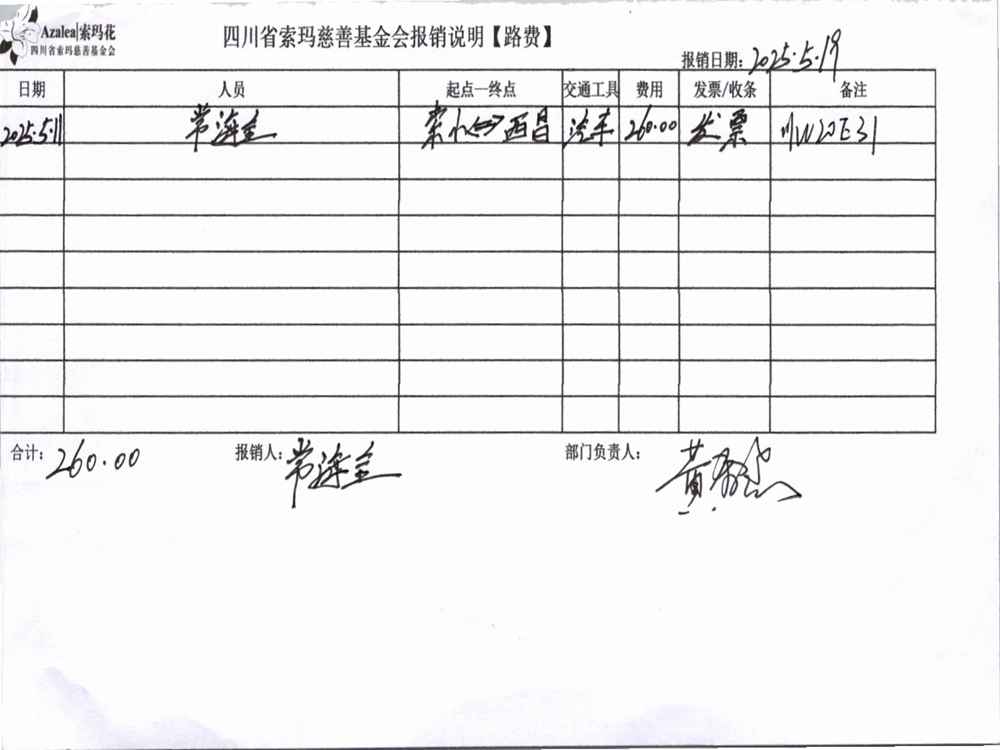 Azalea|索玛花
四川省索玛慈善基金会
四川省索玛慈善基金会报销说明【路费】
报销日期：2025.5.19
日期 人员 起点—终点 交通工具 费用 发票/收条 备注
2025.5.11 常 西昌 汽车 260.00 发票 川W20E31
合计：260.00 报销人：常 部门负责人：黄